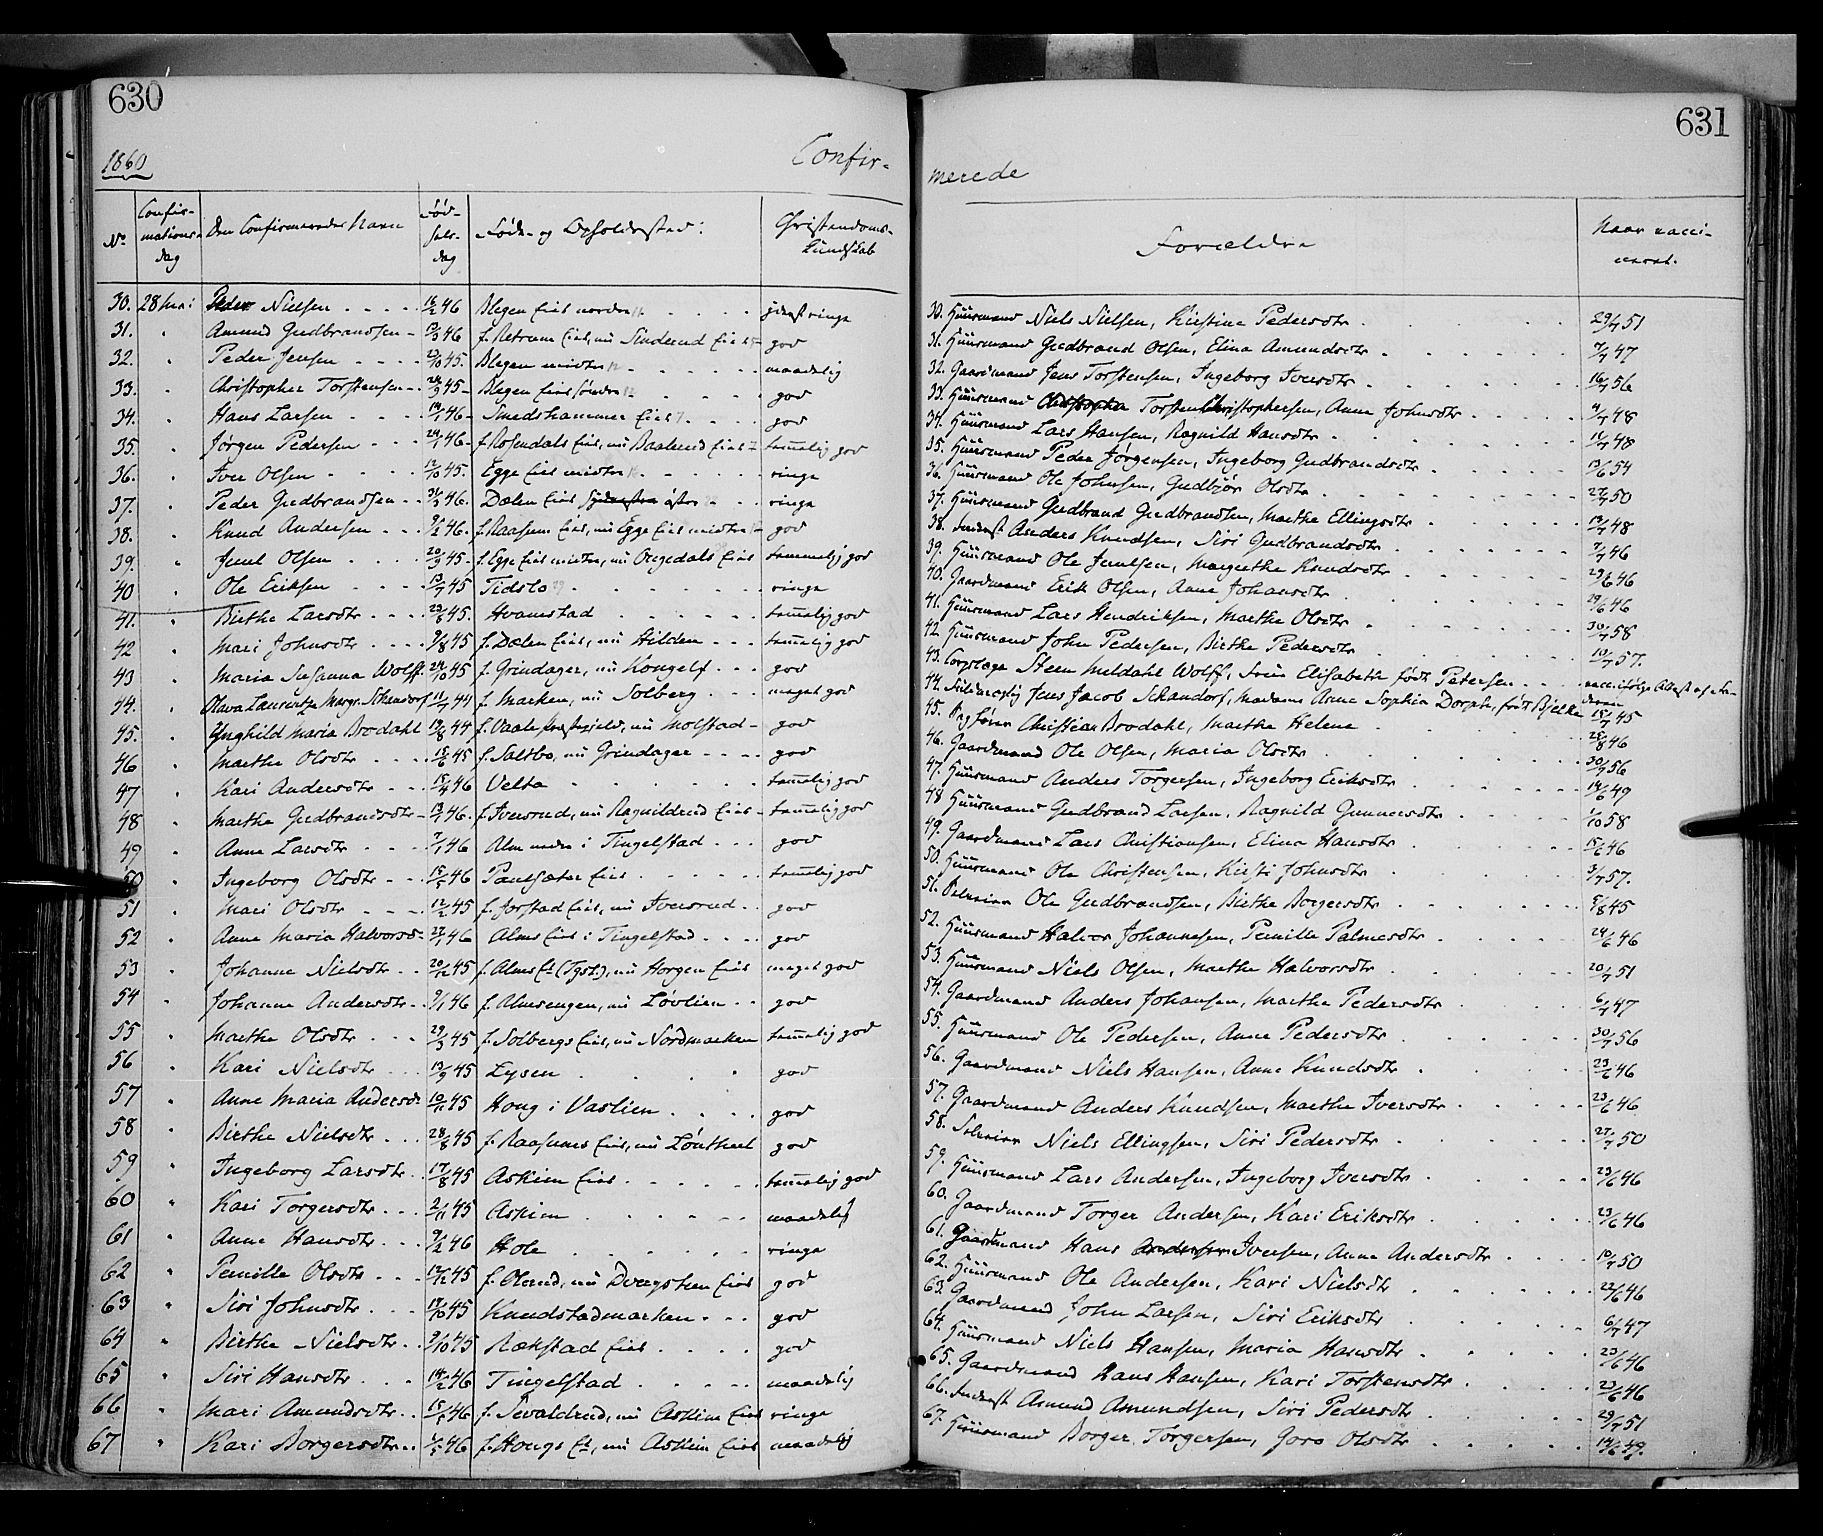 630
1860
Confir-
No. Confirmationsdag Den Confirmeredes Navn Fødselsdag Føde- og Opholdssted: Christendomskundskab
30. 28 Mai Peder Nielsen 16/2 46 Blegen Eiet nordre ringe
31. " Amund Gudbrandsen 46 f. Retrum Eiet, nu Sinderud Eiet god
32. " Peder Jensen 23/10 45. Blegen midtre maadelig
33. " Christopher Torstensen 24/9 45 Blegen Eiet søndre god
34. " Hans Larsen 46 Smedshammer Eiet god
35. " Jørgen Pedersen 24/1 46 f. Rosendals Eiet, nu Raaknud Eiet temmelig god
36. " Iver Olsen 12/10 45. Egge Eiet midtre ringe
37. " Peder Gudbrandsen 31/3 46. Dælen Eiet østre ringe
38. " Knud Andersen 9/2 46. f. Raasum Eiet, nu Egge Eiet midtre god
39. " Juul Olsen 20/9 45. f. Egge Eiet midtre, nu Eiet temmelig god
40 " Ole Eriksen 13/7 45 Tidslo ringe
41. " Birthe Larsdtr 23/8 45. Hvamstad tem̄elig god
42 " Mari Johnsdtr 9/8 45 f. Dælen Eiet, nu Hilden tem̄elig god
43 " Maria Susanna Wolff 24/10 45 f. Grindager, nu Kongelf god
44. " Olava Laurentze Margr. Schandorf 11/7 44 f. Marken, nu Solberg meget god
45. " Ynghild Maria Brodahl 19/8 44 f. Vaale Præstegjeld, nu Molstad god
46 " Marthe Olsdtr 15/6 45 f. Saltbo, nu Grindager god
47 " Kari Andersdtr 15/4 46 Velta tem̄elig god
48 " Marthe Gudbrandsdtr 46. f. Iversrud, nu Ragnildrud Eiet tem̄elig god
49 " Anne Larsdtr 7/1 46 Alm nedre i Tingelstad god
50 " Ingeborg Olsdtr 15/5 46 Paulsæter Eiet tem̄elig god
51 " Mari Olsdtr 12/2 45 f. Jorstad Eiet, nu Iversrud god
52 " Anne Maria Halvorsd 27/1 46 Alms Eiet i Tingelstad god
53 " Johanne Nielsdtr 20/12 45 f. Alms Et (Tglst.), nu Horgen Eiet meget god
54 " Johanne Andersdtr 9/1 46 f. Almsengen, nu Løvlien god
55 " Marthe Olsdtr 29/3 45 f. Solbergs Eiet, nu Nordmarken tem̄elig god
56 " Kari Nielsdtr 13/9 45 Lysen god
57 " Anne Maria Andersd 10/11 45 Houg i Vestlien god
58 " Birthe Nielsdtr 28/8 45 f. Raasums Eiet, nu god
59 " Ingeborg Larsdtr 17/8 45 Askim Eiet tem̄elig god
60 " Kari Torgersdtr 2/11 45 Askim maadelig
61 " Anne Hansdtr 9/2 46 Hole ringe
62 " Pernille Olsdtr 12/12 45 f. Olerud, nu Dvergsten Eiet god
63 " Siri Johnsdtr 19/10 45 Knudstadmarken god
64 " Birthe Nielsdtr 9/10 45 Rækstad Eiet god
65 " Siri Hansdtr 14/2 46 Tingelstad maadelig
66 " Mari Amundsdtr 15/5 46 f. Sevaldrud, nu Askim Eiet ringe
67 " Kari Borgersdtr 46 f. Hougs Et, nu Askim Eiet maadelig
631
merede
Forældre Naar vaccineret.
30. Huusmand Niels Nielsen, Kirstine Pedersdtr 29/7 51
31. Huusmand Gudbrand Olsen, Elina Amundsdtr 7/7 47
32. Gaardmand Jens Torstensen, Ingeborg Iversdtr 16/7 56
33. Huusmand Christopher Torsten Christophersen, Anne Johnsdtr 48
34. Huusmand Lars Hansen, Ragnild Hansdtr 48
35. Huusmand Peder Jørgensen, Ingeborg Gudbrandsdtr 13/6 54
36. Huusmand Ole Johnsen, Gudbjør Olsdtr 27/7 50
37. Huusmand Gudbrand Gudbrandsen, Marthe Ellingsdtr 48
38. Inderst Anders Knudsen, Siri Gudbrandsdtr 7/7 46
39. Huusmand Ole Juulsen, Margrethe Knudsdtr 29/6 46
40. Gaardmand Erik Olsen, Anne Johansdtr 29/6 46
41. Huusmand Lars Hendriksen, Marthe Olsdtr 30/7 58
42. Huusmand John Pedersen, Birthe Pedersdtr 10/7 57.
43. Corpslæge Steen Meldahl Wolff, Fru Elisabeth født Petersen vacc. ifølge Attest af Faderen
44. Jens Jacob Schandorf, Madame Anne Sophie Dorph, født Bjelke 15/7 45
45. Christian Brodahl, Marthe Helene 25/8 46
46. Gaardmand Ole Olsen, Maria Olsdtr 30/7 56
47. Huusmand Anders Torgersen, Ingeborg Eriksdtr 14/6 49
48 Huusmand Gudbrand Larsen, Ragnild Gunnersdtr 1/10 58
49. Gaardmand Lars Christiansen, Elina Hansdtr 15/6 46
50. Huusmand Ole Christensen, Kirsti Johnsdtr 3/7 57.
51. Ole Gudbrandsen, Birthe Borgersdtr 5/8 45
52. Huusmand Halvor Johannesen, Pernille Palmesdtr 24/6 46
53. Huusmand Niels Olsen, Marthe Halvorsdtr 20/7 51
54. Gaardmand Anders Johansen, Marthe Pedersdtr 6/7 47
55. Huusmand Ole Pedersen, Anne Pedersdtr 30/7 56
56. Gaardmand Niels Hansen, Anne Knudsdtr 23/6 46
57. Gaardmand Anders Knudsen, Marthe Iversdtr 23/6 46
58. Niels Ellingsen, Siri Pedersdtr 27/7 50
59. Huusmand Lars Andersen, Ingeborg Iversdtr 23/6 46
60. Gaardmand Torger Andersen, Kari Eriksdtr 23/6 46
61. Gaardmand Hans Andersen Iversen, Anne Andersdtr 10/7 50
62. Huusmand Ole Andersen, Kari Nielsdtr 22/6 46
63. Gaardmand John Larsen, Siri Eriksdtr 6/7 47
64. Huusmand Niels Hansen, Maria Hansdtr 23/6 46
65. Gaardmand Hans Hansen, Kari Torstensdtr 23/6 46
66. Inderst Amund Amundsen, Siri Pedersdtr 29/7 51
67. Huusmand Borger Torgersen, Goro Olsdtr 14/6 49.